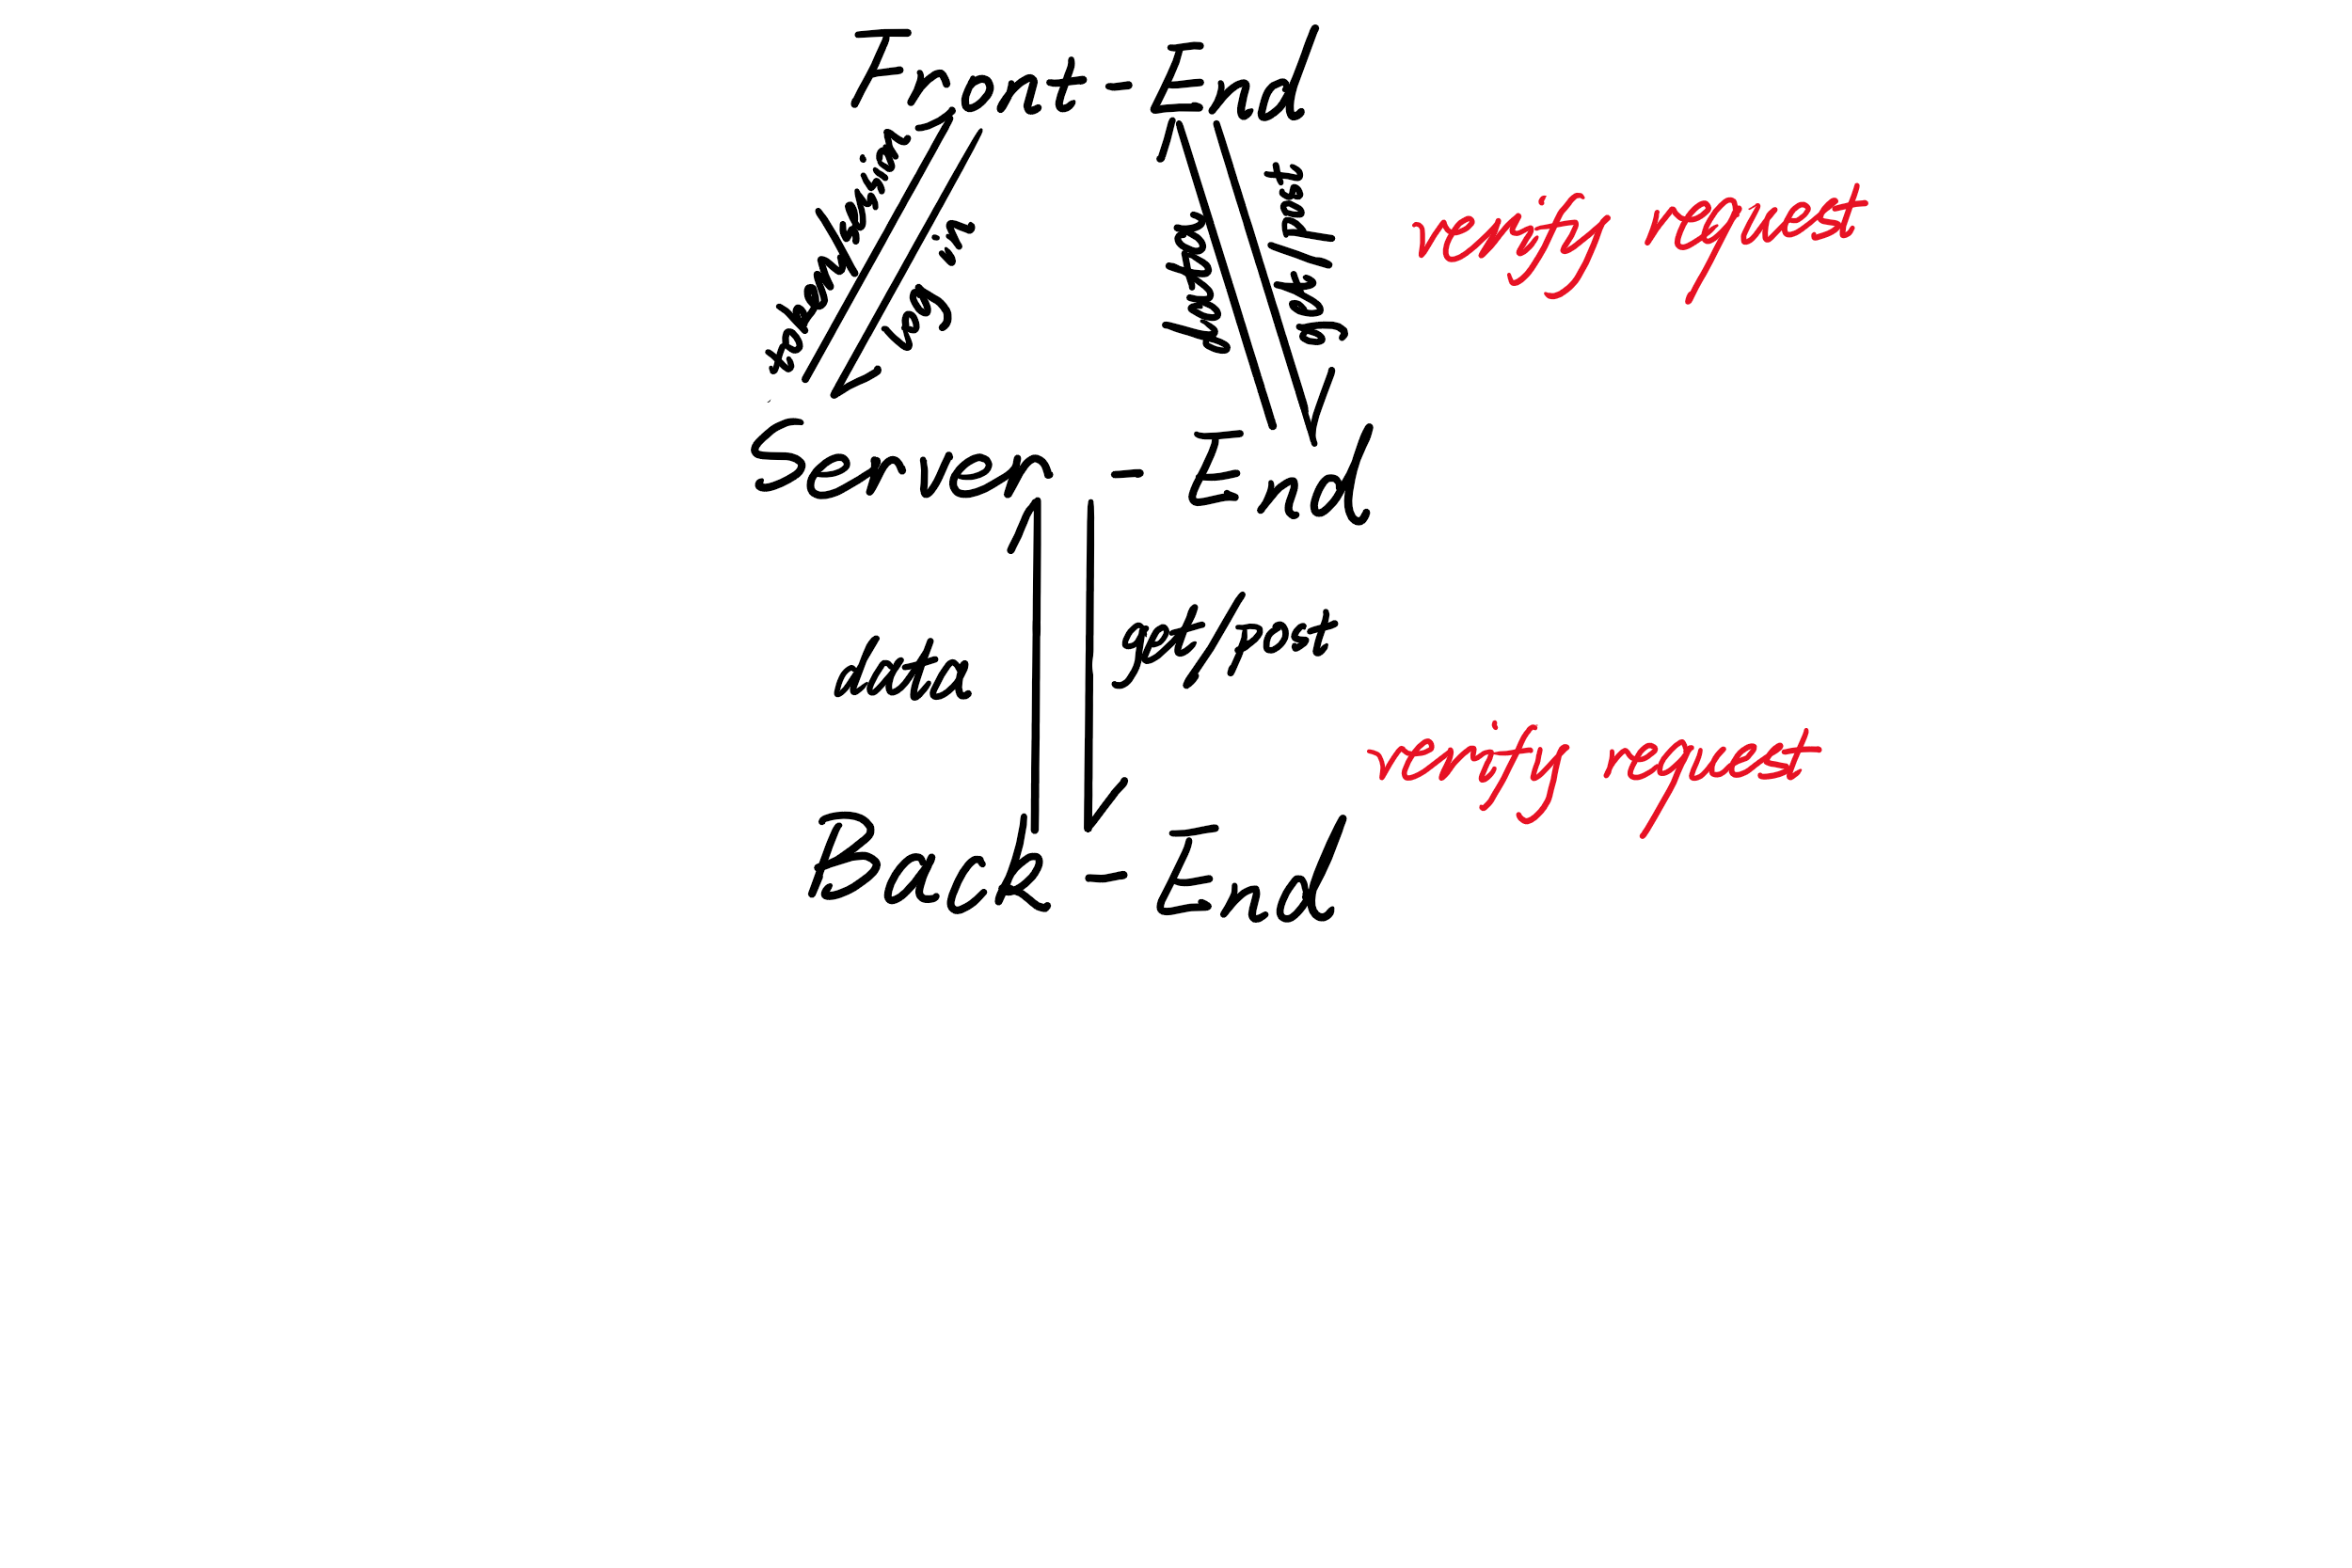 Front-End
token/userinfo
log in
data
get/post
verify request
Server-End
data
get/post
verify request
Back-End